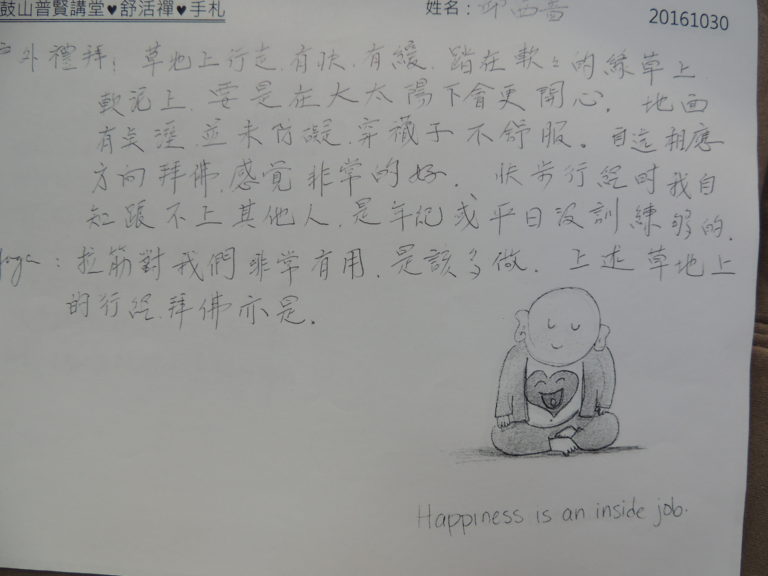 鼓山普賢講堂♥舒活禪♥手札 姓名: 邱西 20161030
外禮拜: 草地上行走,有快,有緩,踏在軟々的綠草上
軟泥上,要是在大太陽下會更開心. 地面
有点溼,並未防礙,穿襪子不舒服。自這相應
方向拜佛,感覺非常的好. 快步行經時我自
知跟不上其他人,是年記或平日沒訓練够的.
Yoga: 拉筋對我們非常有用,是該多做. 上述草地上
的行經,拜佛亦是.
Happiness is an inside job.